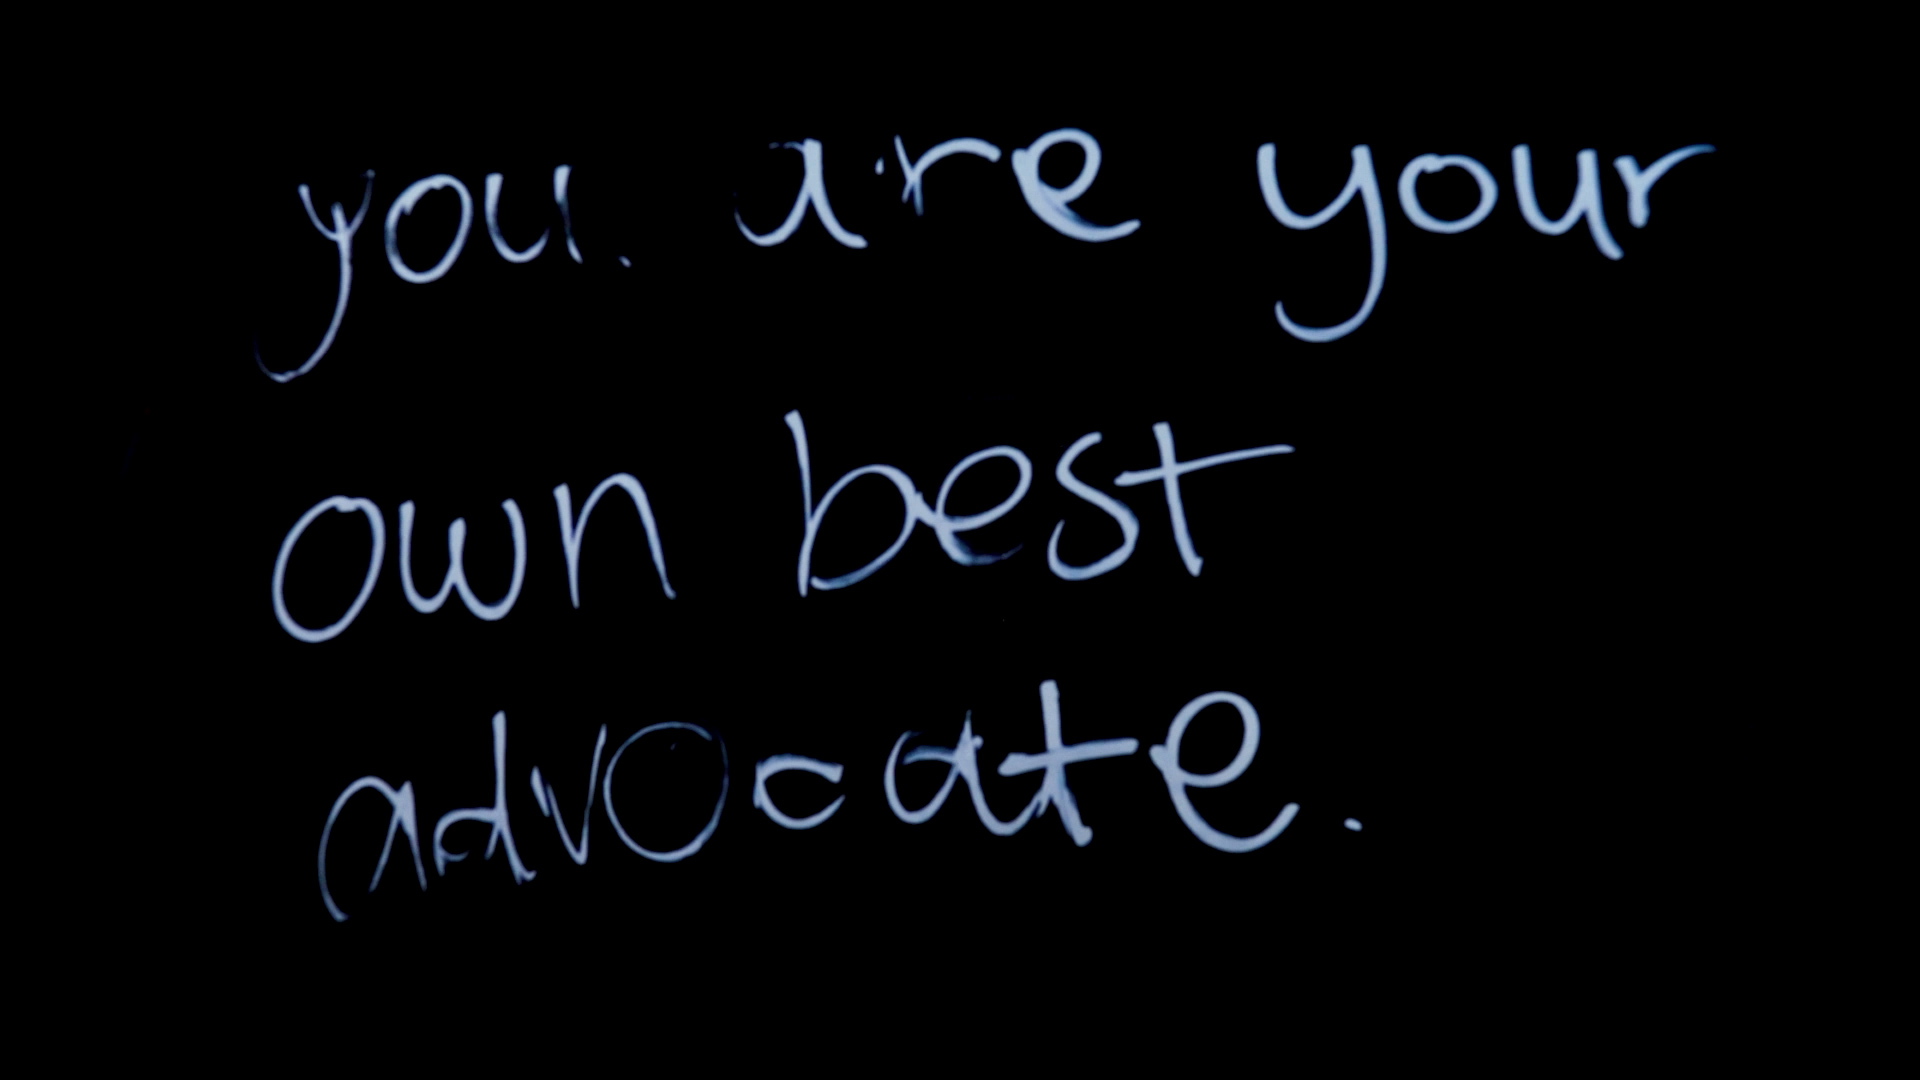 you are your
own best
advocate.